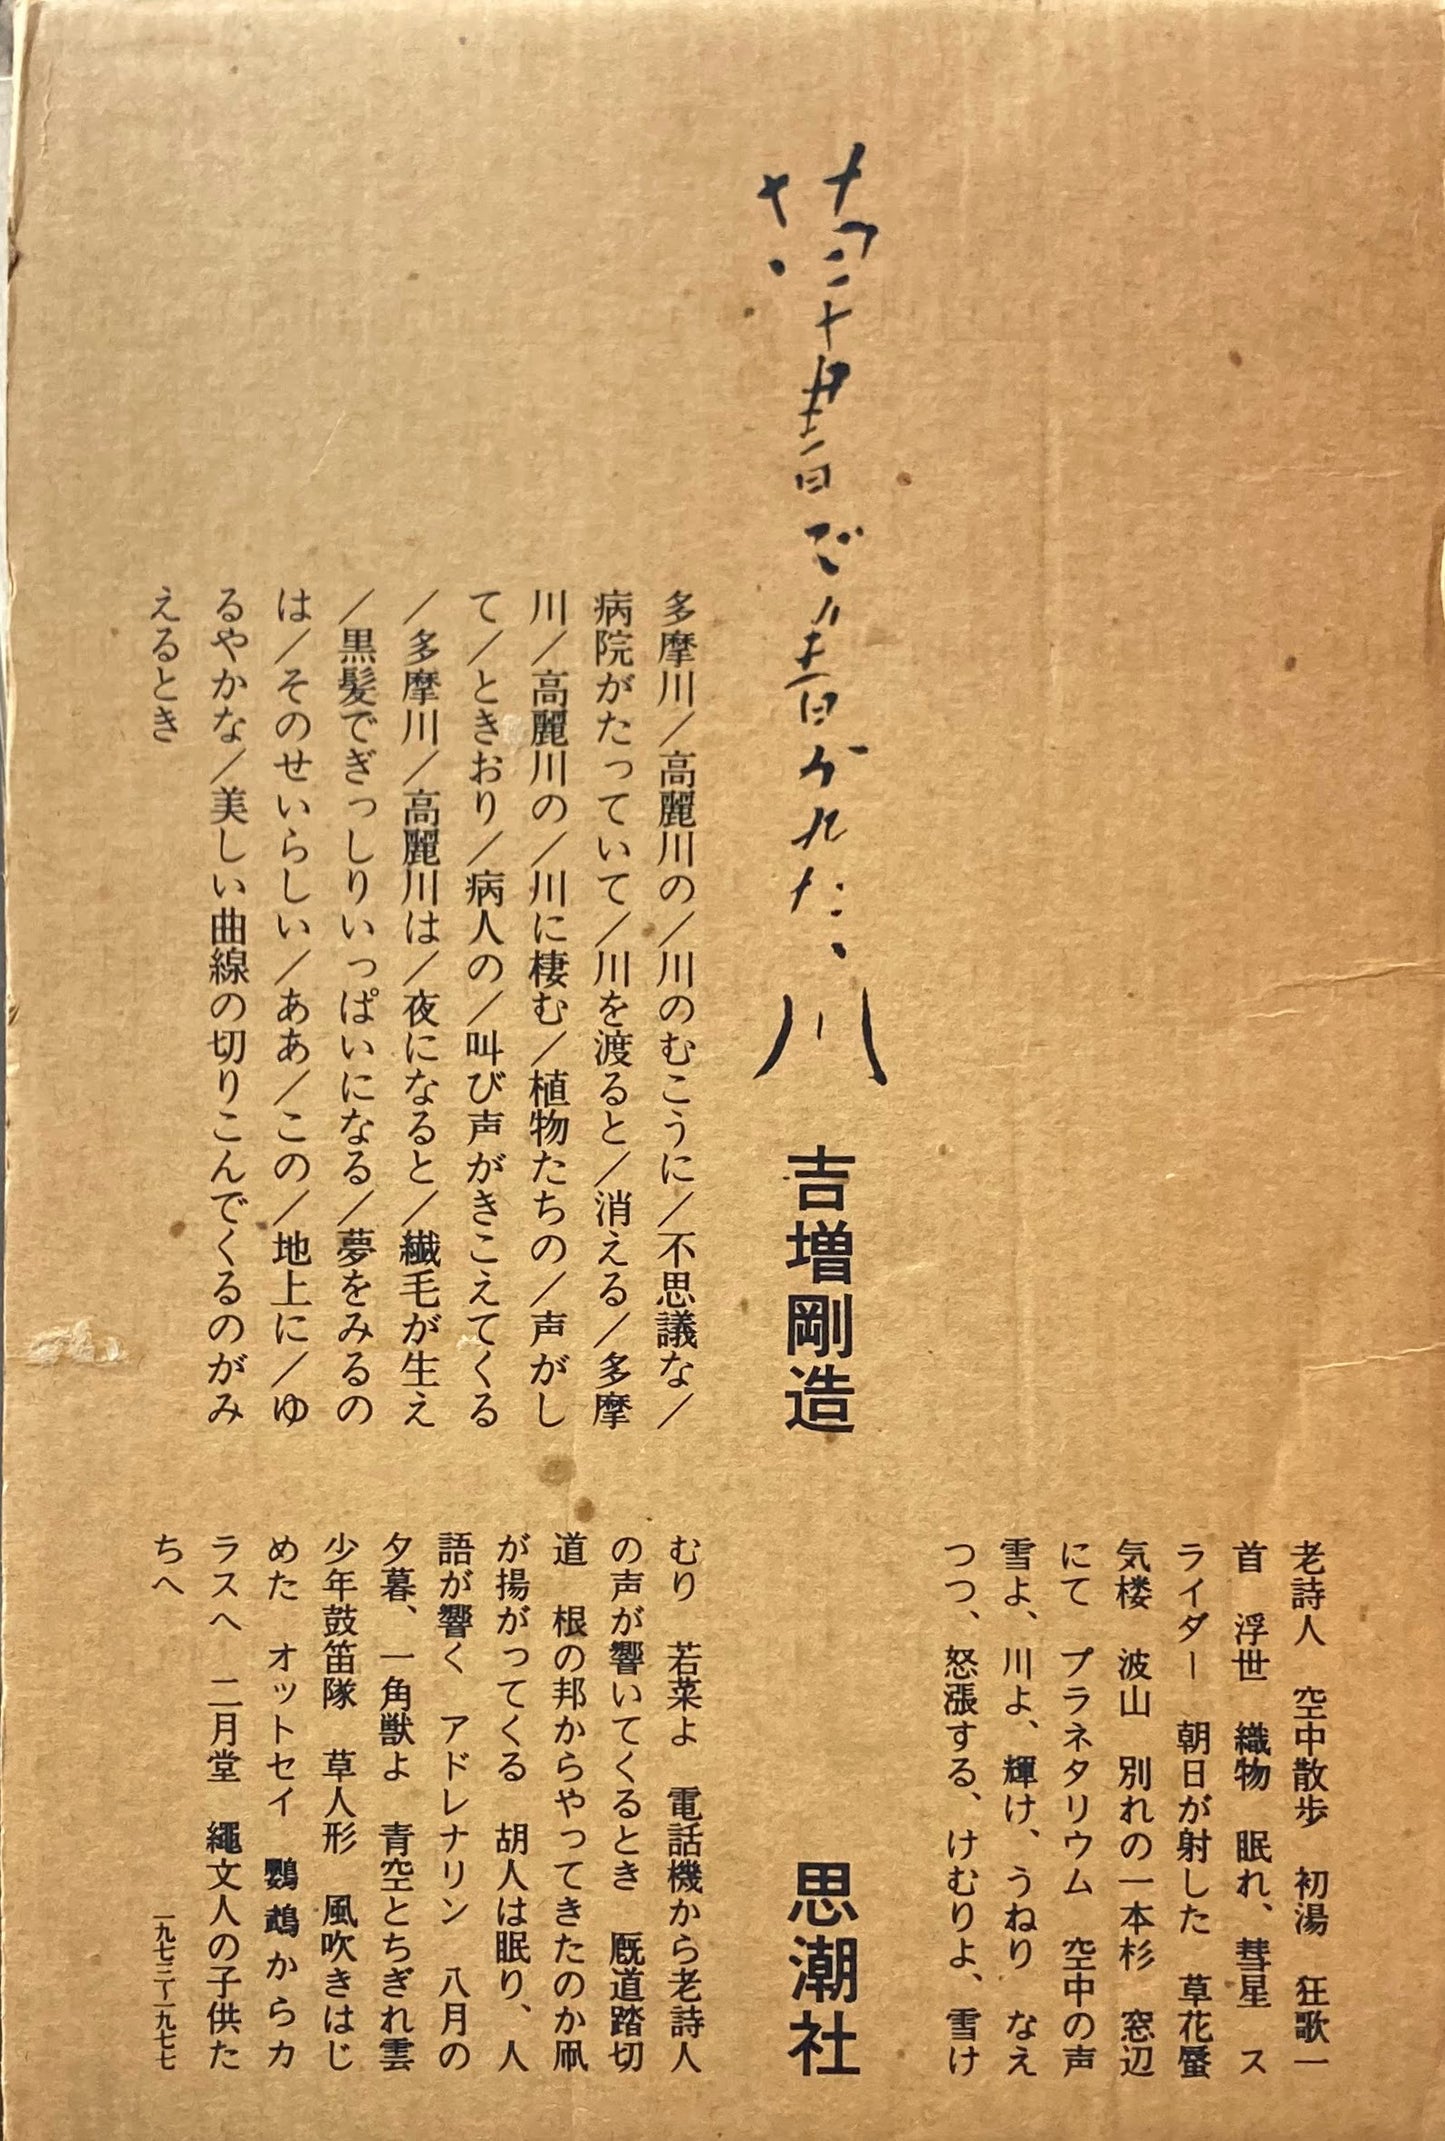 老詩人　空中散歩　初湯　狂歌一
首　浮世　織物　眠れ、彗星　ス
ライダー　朝日が射した　草花蜃
気楼　波山　別れの一本杉　窓辺
にて　プラネタリウム　空中の声
雪よ、川よ、輝け、うねり　なえ
つつ、怒漲する、けむりよ、雪け
草書で書かれた、川
吉増剛造
思潮社
むり　若菜よ　電話機から老詩人
の声が響いてくるとき　厩道踏切
道　根の邦からやってきたのか凧
が揚がってくる　胡人は眠り、人
語が響く　アドレナリン　八月の
夕暮、一角獣よ　青空とちぎれ雲
少年鼓笛隊　草人形　風吹きはじ
めた　オットセイ　鸚鵡からカ
ラスへ　二月堂　縄文人の子供た
ちへ
一九七三〜一九七七
多摩川／高麗川の／川のむこうに／不思議な／
病院がたっていて／川を渡ると／消える／多摩
川／高麗川の／川に棲む／植物たちの／声がし
て／ときおり／病人の／叫び声がきこえてくる
／多摩川／高麗川は／夜になると／繊毛が生え
／黒髪でぎっしりいっぱいになる／夢をみるの
は／そのせいらしい／ああ／この／地上に／ゆ
るやかな／美しい曲線の切りこんでくるのがみ
えるとき